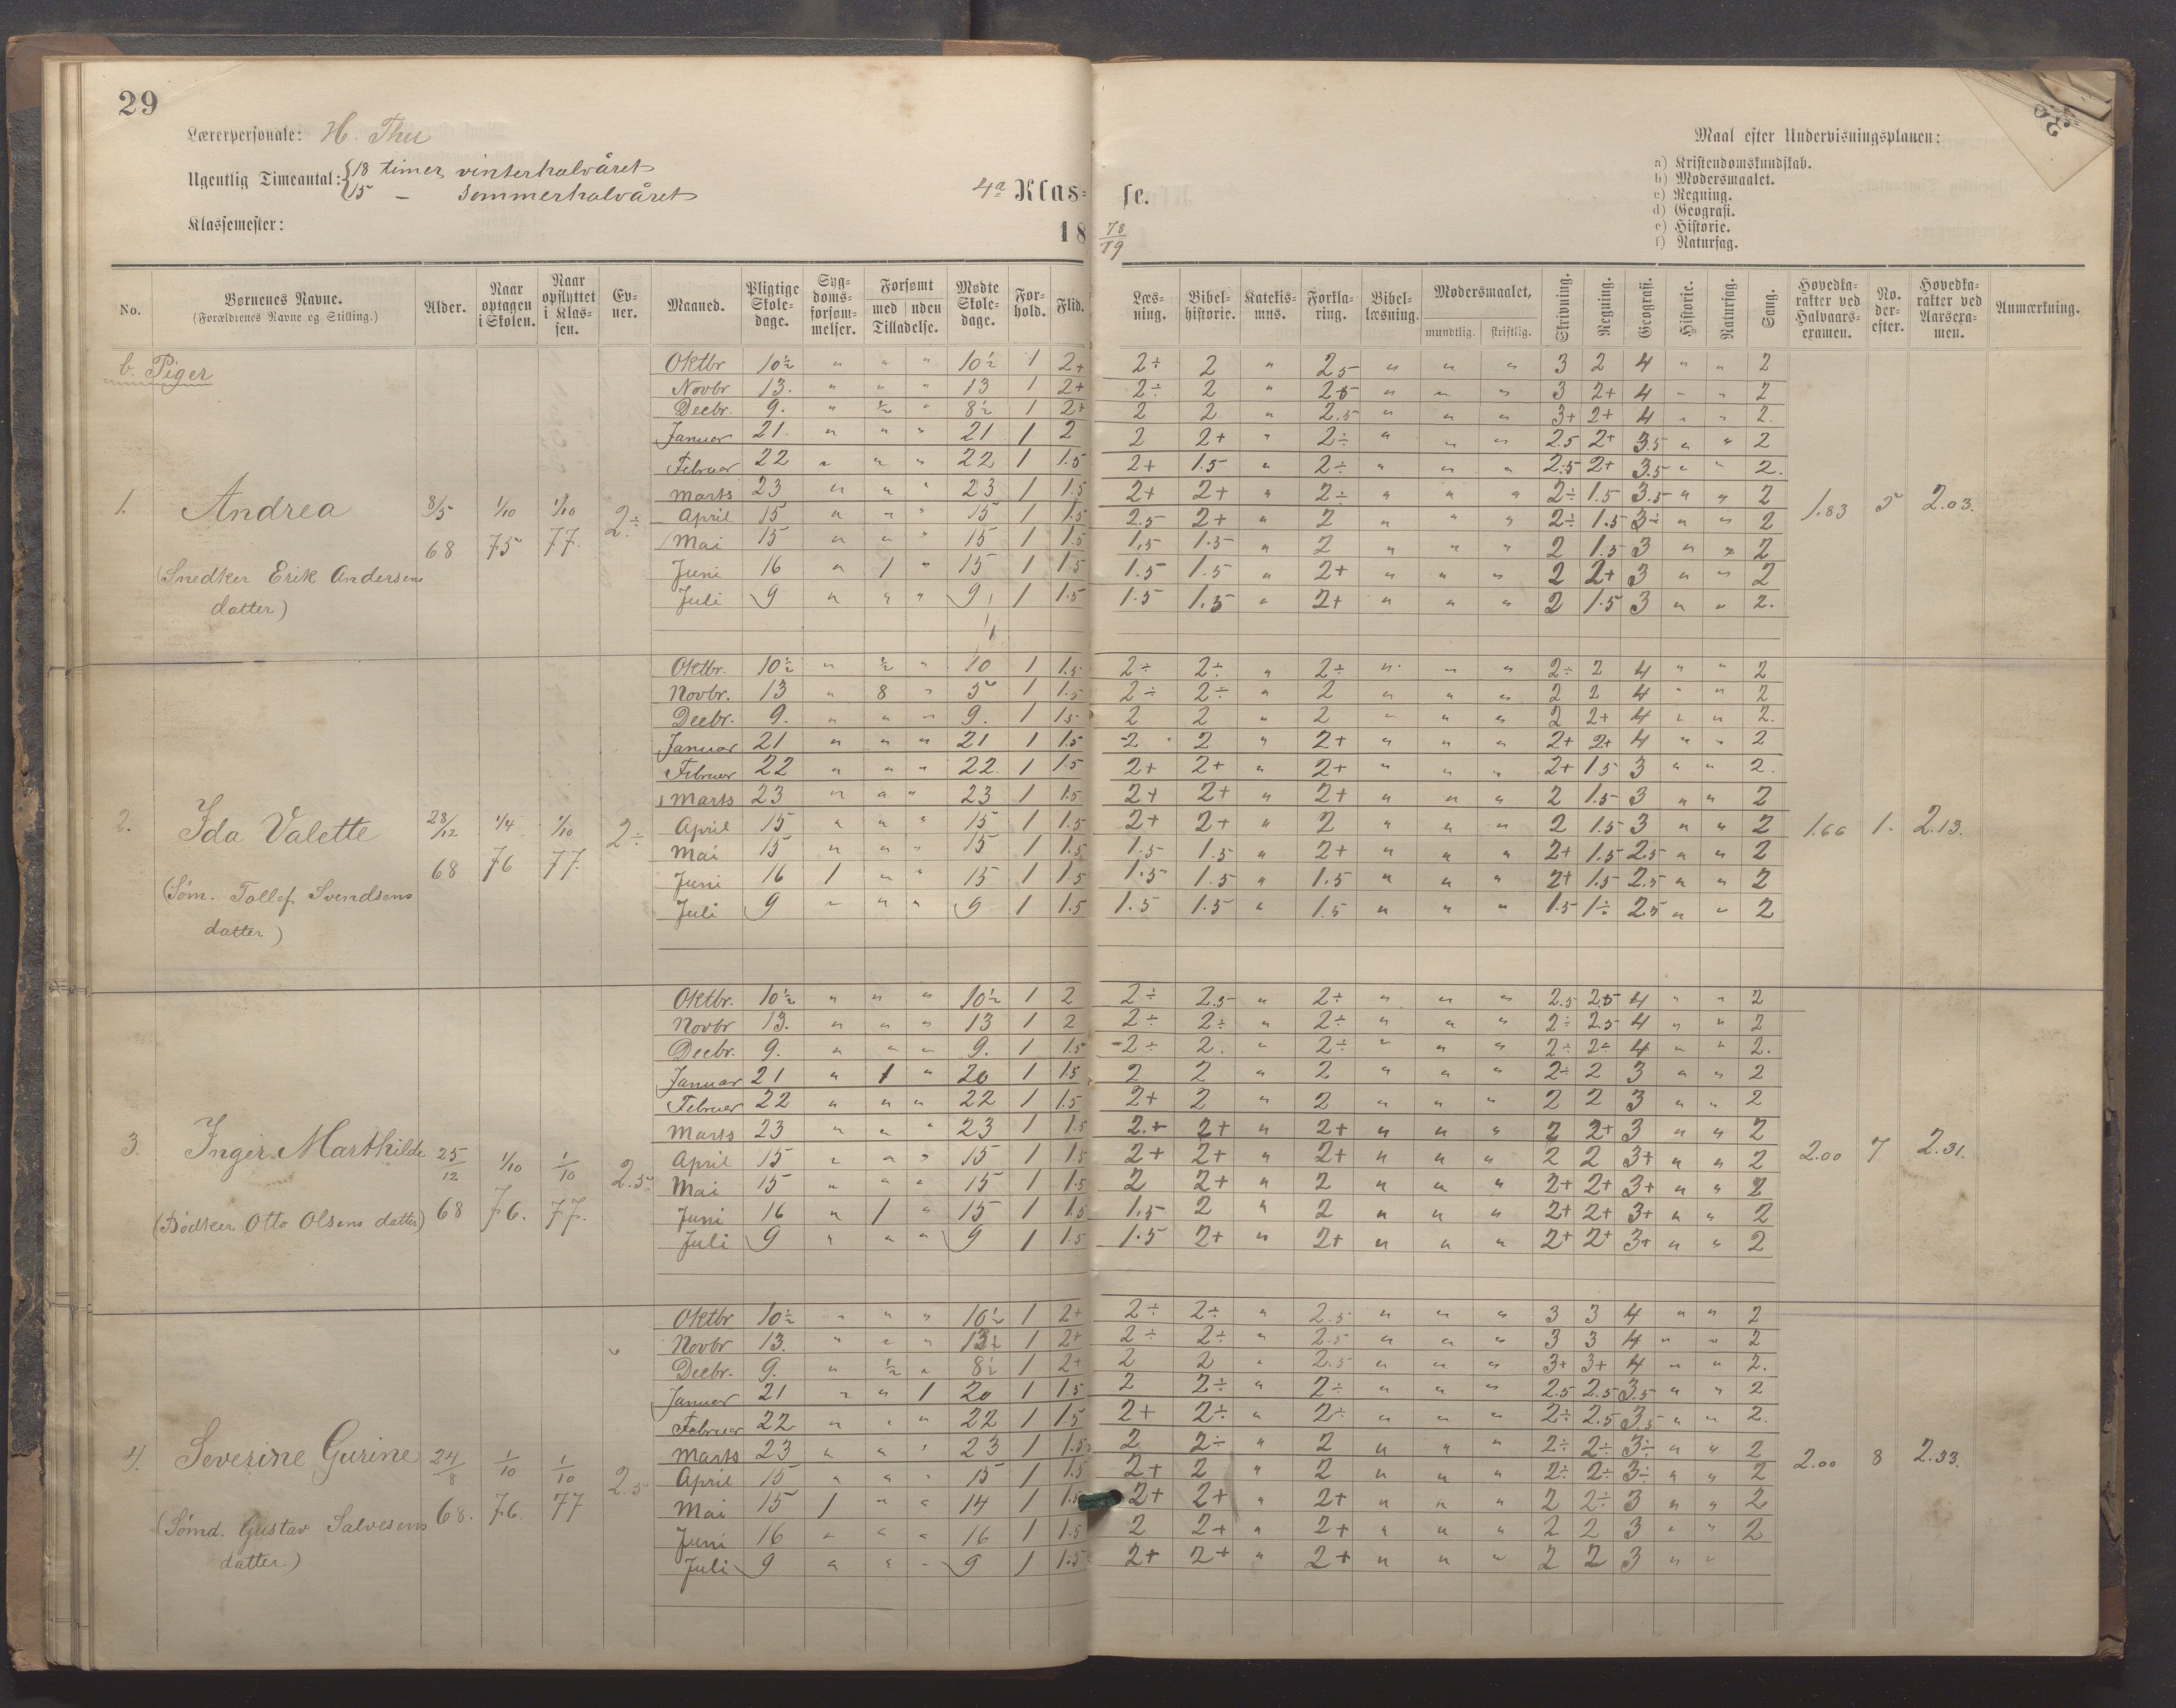 29
Lærerpersonale: H. Thu
Ugentlig Timeantal: { 18 timer vinterhalvåret
15 – sommerhalvåret
4a Klasse.
Klassemester:
18 78/79
Maal efter Undervisningsplanen:
a) Kristendomskundskab.
b) Modersmaalet.
c) Regning.
d) Geografi.
e) Historie.
f) Naturfag.
No. | Børnenes Navne. (Forældrenes Navne og Stilling.) | Alder. | Naar optagen i Skolen. | Naar opflyttet i Klassen. | Evner. | Maaned. | Pligtige Skoledage. | Sygdomsforsømmelser. | Forsømt med / uden Tilladelse. | Mødte Skoledage. | Forhold. | Flid. | Læsning. | Bibelhistorie. | Katekismus. | Forklaring. | Bibellæsning. | Modersmaalet, mundtlig. | skriftlig. | Skrivning. | Regning. | Geografi. | Historie. | Naturfag. | Sang. | Hovedkarakter ved Halvaarsexamen. | No. derefter. | Hovedkarakter ved Aarsexamen. | Anmærkning.
b. Piger
1. Andrea 8/5 68 1/10 75 1/10 77. 2÷ 1.83 5 2.03.
(Snedker Erik Andersens
datter)
Oktbr 10½ " " " 10½ 1 2+ 2÷ 2 " 2.5 " " " 3 2 4 " " 2
Novbr 13. " " " 13 1 2+ 2÷ 2 " 2.5 " " " 3 2+ 4 " " 2
Decbr. 9. " ½ " 8½ 1 2+ 2 2 " 2.5 " " " 3+ 2+ 4 " " 2.
Januar 21 " " " 21 1 2 2 2+ " 2÷ " " " 2.5 2+ 3.5 " " 2
Februar 22 " " " 22 1 1.5 2+ 1.5 " 2÷ " " " 2.5 2+ 3.5 " " 2.
Marts 23 " " " 23 1 1.5 2+ 2+ " 2÷ " " " 2÷ 1.5 3.5 " " 2
April 15 " " " 15 1 1.5 2.5 2+ " 2 " " " 2÷ 1.5 3÷ " " 2
Mai 15 " " " 15 1 1.5 1.5 1.5 " 2 " " " 2 1.5 3 " " 2
Juni 16 " 1 " 15 1 1.5 1.5 1.5 " 2+ " " " 2 2+ 3 " " 2
Juli 9 " " " 9 1 1.5 1.5 1.5 " 2+ " " " 2 1.5 3 " " 2.
2. Ida Valette 28/12 68 1/4 76 1/10 77. 2÷ 1.66 1. 2.13.
(Søm. Tollef Svendsens
datter)
Oktbr. 10½ " ½ " 10 1 1.5 2÷ 2÷ " 2÷ " " " 2÷ 2 4 " " 2
Novbr. 13 " 8 " 5 1 1.5 2÷ 2÷ " 2 " " " 2 2 4 " " 2
Decbr. 9. " " " 9. 1 1.5 2 2 " 2 " " " 2 2+ 4 " " 2.
Januar 21 " " " 21 1 1.5 2 2 " 2+ " " " 2+ 2+ 4 " " 2
Februar 22 " " " 22. 1 1.5 2+ 2+ " 2+ " " " 2+ 1.5 3 " " 2.
Marts 23 " " " 23 1 1.5 2+ 2+ " 2+ " " " 2 1.5 3 " " 2
April 15 " " " 15 1 1.5 2+ 2+ " 2 " " " 2 1.5 3 " " 2
Mai 15 " " " 15 1 1.5 1.5 1.5 " 2+ " " " 2+ 1.5 2.5 " " 2
Juni 16 1 " " 15 1 1.5 1.5 1.5 " 1.5 " " " 2+ 1.5 2.5 " " 2
Juli 9 " " " 9 1 1.5 1.5 1.5 " 1.5 " " " 1.5 1÷ 2.5 " " 2
3. Inger Marthilde 25/12 68 1/10 76. 1/10 77. 2.5 2.00 7 2.31.
(Bødker Otto Olsens datter)
Oktbr. 10½ " " " 10½ 1 2 2÷ 2.5 " 2÷ " " " 2.5 2.5 4 " " 2
Novbr 13. " " " 13 1 2 2÷ 2÷ " 2÷ " " " 2÷ 2.5 4 " " 2
Decbr. 9. " " " 9. 1 1.5 2÷ 2. " 2÷ " " " 2÷ 2÷ 4 " " 2.
Januar 21 " 1 " 20 1 1.5 2 2 " 2 " " " 2÷ 2 3 " " 2
Februar 22 " " " 22 1 1.5 2+ 2 " 2 " " " 2 2 3 " " 2
Marts 23 " " " 23 1 1.5 2+ 2+ " 2+ " " " 2 2+ 3 " " 2
April 15 " " " 15 1 1.5 2+ 2+ " 2+ " " " 2 2 3+ " " 2
Mai 15 " " " 15 1 1.5 2 2+ " 2 " " " 2+ 2+ 3+ " " 2
Juni 16 " 1 " 15 1 1.5 1.5 2 " 2 " " " 2+ 2+ 3+ " " 2
Juli 9 " " " 9 1 1.5 1.5 2+ " 2+ " " " 2+ 2+ 3+ " " 2
4. Severine Gurine 24/8 68. 1/10 76. 1/10 77 2.5 2.00 8 2.33.
(Sømd. Gustav Salvesens
datter.)
Oktbr 10½ " " " 10½ 1 2+ 2÷ 2÷ " 2.5 " " " 3 3 4 " " 2
Novbr 13. " " " 13 1 2+ 2÷ 2÷ " 2.5 " " " 3 3 4 " " 2
Decbr. 9. " ½ " 8½ 1 2+ 2 2 " 2.5 " " " 3+ 3+ 4 " " 2.
Januar 21 " " 1 20 1 1.5 2 2÷ " 2÷ " " " 2.5 2.5 3.5 " " 2
Februar 22 " " " 22 1 1.5 2+ 2÷ " 2÷ " " " 2÷ 2.5 3.5 " " 2.
Marts 23 " " " 23 1 1.5 2 2÷ " 2 " " " 2÷ 2÷ 3÷ " " 2
April 15 " " " 15 1 1.5 2+ 2 " 2 " " " 2÷ 2÷ 3÷ " " 2
Mai 15 1 " " 14 1 1.5 2+ 2+ " 2+ " " " 2 2÷ 3 " " 2
Juni 16 " " " 16 1 1.5 2 2+ " 2+ " " " 2 2 3 " " 2
Juli 9 " " " 9 1 1.5 2+ 2+ " 2+ " " " 2 2 3 " "